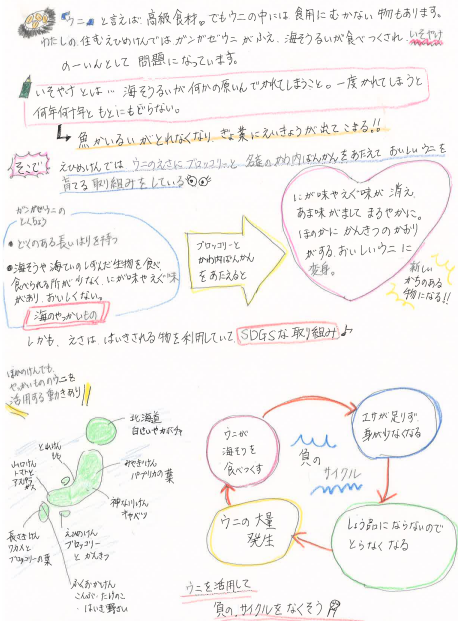 ウニ と言えば高級食材。でもウニの中には食用にむかない物もあります。
わたしの住むえひめけんではガンガゼウニがふえ、海そうるいが食べつくされ、いそやけ
の一いんとして問題になっています。
いそやけとは… 海そうるいが何かの原いんでかれてしまうこと。一度かれてしまうと
何年何十年ともとにもどらない。
魚かいるいがとれなくなり、ぎょ業にえいきょうが出てこまる!!
そこで
えひめけんでは ウニのえさにブロッコリーと名産のかわ内ばんかんをあたえて おいしいウニを
育てる取り組みをしている
ガンガゼウニの
とくちょう
• どくのある長いはりを持つ
• 海そうや海ていのしずんだ生物を食べ、
食べられる所が少なく、にが味やえぐ味
があり、おいしくない。
海のやっかいもの
ブロッコリーと
かわ内ばんかん
をあたえると
にが味やえぐ味が消え、
あま味がまして まろやかに。
ほのかに かんきつのかおり
がする、おいしいウニに
変身。
新しい
かちのある
物になる!!
しかも、えさは、はいきされる物を利用していて SDGSな取り組み♪
ほかのけんでも
やっかいもののウニを
活用する動きあり
北海道
白さいやカボチャ
とやまけん
みやぎけん
パプリカの葉
山口けん
トマトと
アスパラ
ガス
神な川けん
キャベツ
長さきけん
ワカメと
ブロッコリーの葉
えひめけん
ブロッコリー
と かんきつ
ふくおかけん
こんぶ・たけのこ
・はいき野さい
ウニが
海そうを
食べつくす
エサが足りず
身が少なくなる
負の
サイクル
ウニの大量
発生
しょう品にならないので
とらなくなる
ウニを活用して
負のサイクルをなくそう